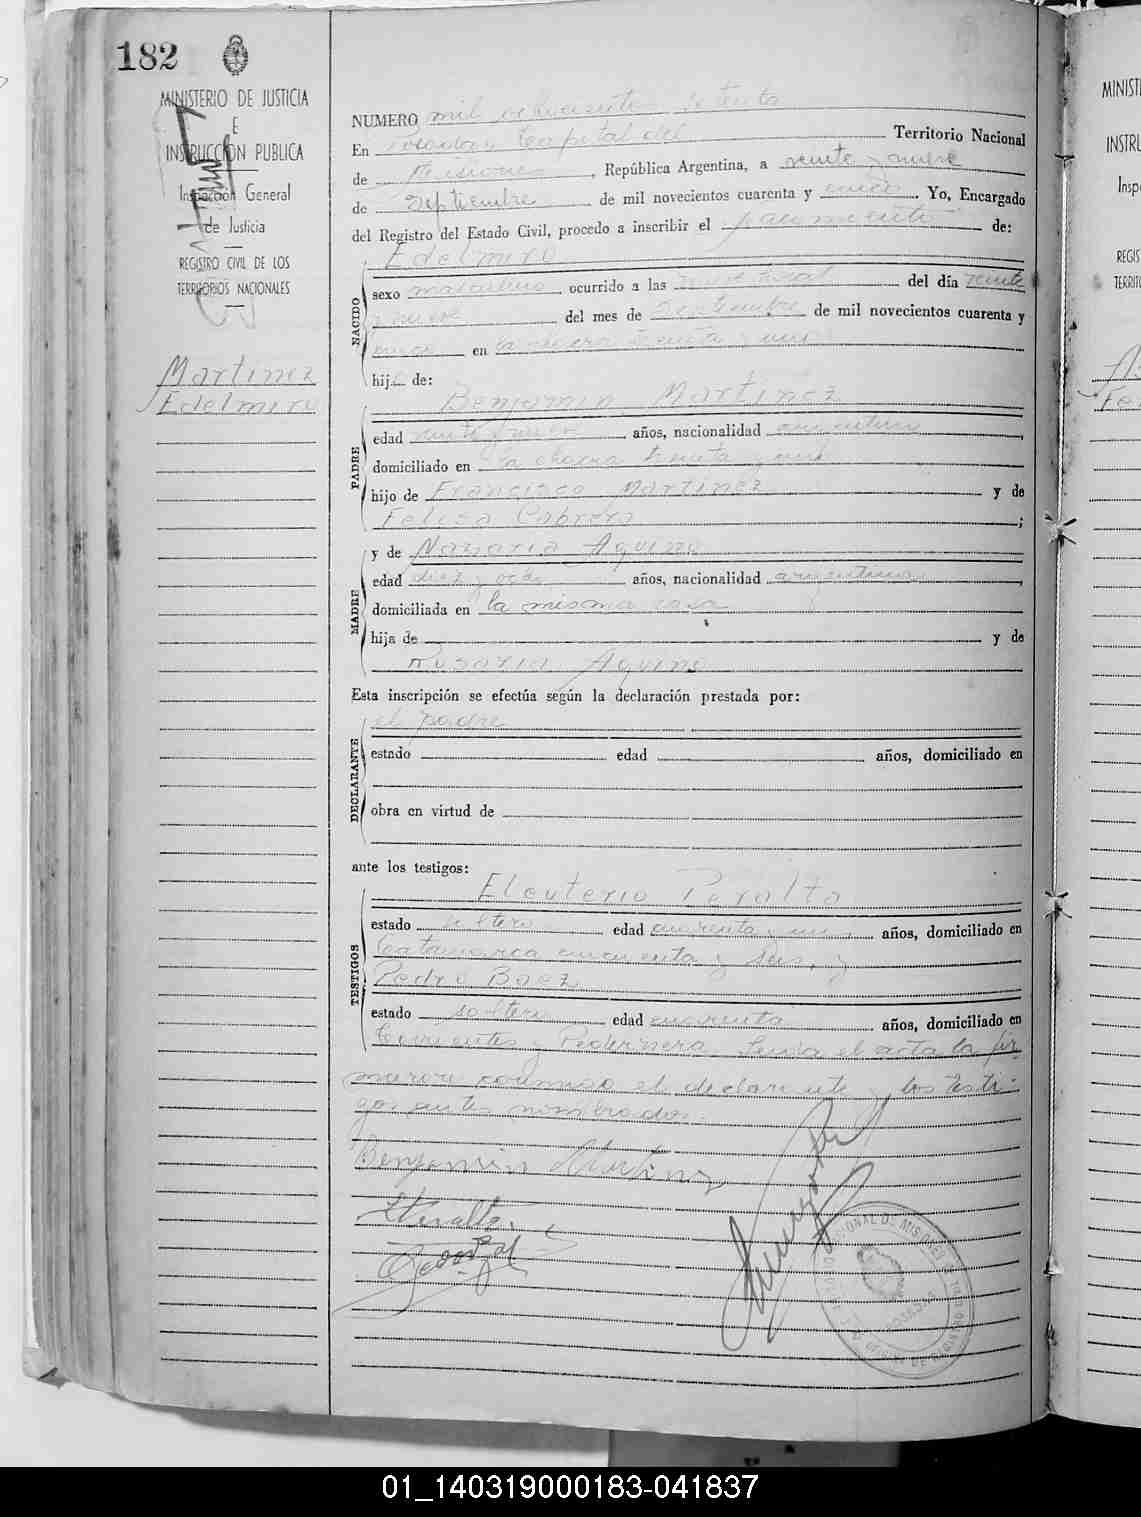 182
MINISTERIO DE JUSTICIA
E
INSTRUCCIÓN PUBLICA
Inspección General
de Justicia
REGISTRO CIVIL DE LOS
TERRITORIOS NACIONALES
Martinez
Edelmiro
NUMERO mil ochocientos setenta
En Posadas Capital del Territorio Nacional
de Misiones, República Argentina, a veinte y nueve
de Septiembre de mil novecientos cuarenta y cinco Yo, Encargado
del Registro del Estado Civil, procedo a inscribir el nacimiento de:
Edelmiro
NACIDO
sexo masculino ocurrido a las del día veinte
y nueve del mes de Septiembre de mil novecientos cuarenta y
cinco en la chacra treinta y uno
hijo de:
Benjamin Martinez
PADRE
edad veinte y nueve años, nacionalidad argentina,
domiciliado en la chacra treinta y uno
hijo de Francisco Martinez y de
Felisa Cabrera;
y de Nazaria Aquino
MADRE
edad diez y ocho años, nacionalidad argentina,
domiciliada en la misma casa
hija de y de
Rosaria Aquino
Esta inscripción se efectúa según la declaración prestada por:
el padre
DECLARANTE
estado edad años, domiciliado en
obra en virtud de
ante los testigos:
Eleuterio Peralta
TESTIGOS
estado soltero edad cuarenta y uno años, domiciliado en
Catamarca cincuenta y seis, y
Pedro Baez
estado soltero edad cuarenta años, domiciliado en
Corrientes y Pedernera. Leida el acta la fir-
maron conmigo el declarante y los testi-
gos antes nombrados.
Benjamin Martinez
EPeralta
MINIST
INSTRU
Inspe
REGIS
TERRITO
01_140319000183-041837